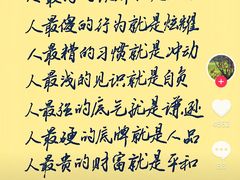 人最傻的行为就是炫耀
人最糟的习惯就是冲动
人最浅的见识就是自负
人最强的底气就是谦逊
人最硬的底牌就是人品
人最贵的财富就是平和